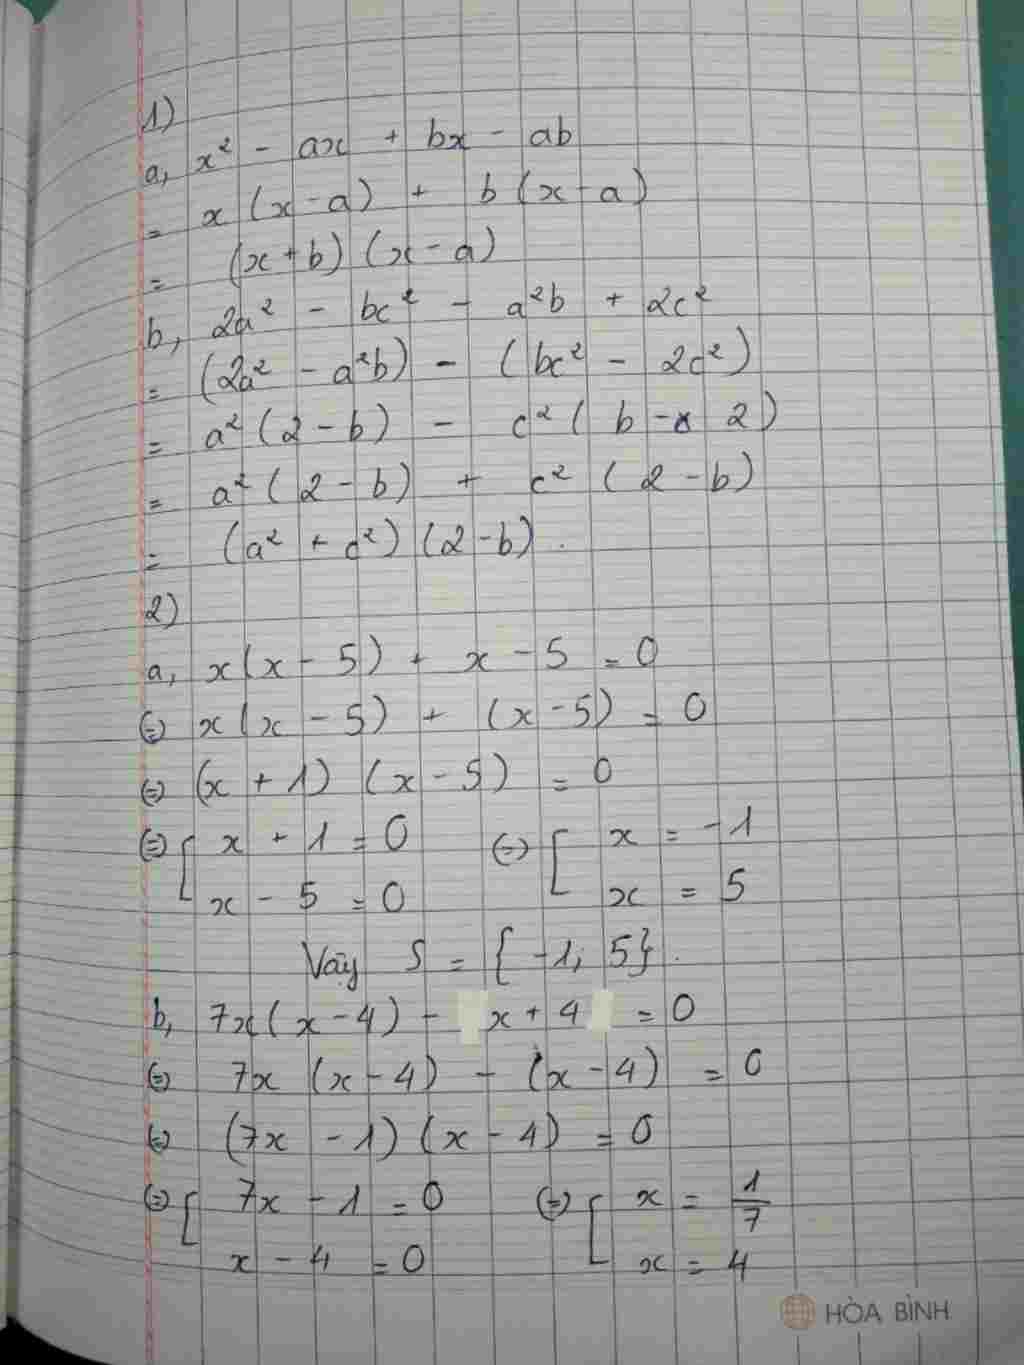 1)
a, x² - ax + bx - ab
= x (x - a) + b (x - a)
= (x + b) (x - a)
b, 2a² - bc² - a²b + 2c²
= (2a² - a²b) - (bc² - 2c²)
= a² (2 - b) - c² ( b - 2)
= a² (2 - b) + c² (2 - b)
= (a² + c²) (2 - b).
2)
a, x(x - 5) + x - 5 = 0
⇔ x(x - 5) + (x - 5) = 0
⇔ (x + 1) (x - 5) = 0
⇔ [ x + 1 = 0 ⇔ [ x = -1
x - 5 = 0 x = 5
Vậy S = {-1; 5}.
b, 7x(x - 4) - x + 4 = 0
⇔ 7x (x - 4) - (x - 4) = 0
⇔ (7x - 1) (x - 4) = 0
⇔ [ 7x - 1 = 0 ⇔ [ x = 1/7
x - 4 = 0 x = 4
HÒA BÌNH